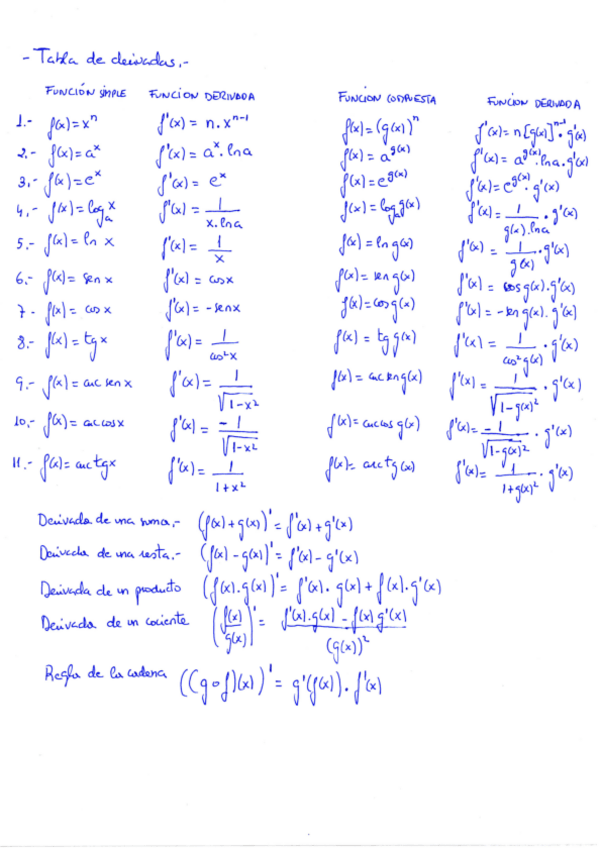 - Tabla de derivadas.-
FUNCIÓN SIMPLE FUNCION DERIVADA FUNCION COMPUESTA FUNCION DERIVADA
1.- f(x)=xⁿ f'(x) = n·xⁿ⁻¹ f(x)=(g(x))ⁿ f'(x)=n[g(x)]ⁿ⁻¹·g'(x)
2.- f(x)=aˣ f'(x) = aˣ·lna f(x) = a^g(x) f'(x) = a^g(x)·lna·g'(x)
3.- f(x)=eˣ f'(x) = eˣ f(x)=e^g(x) f'(x)=e^g(x)·g'(x)
4.- f(x)=logₐx f'(x) = 1/(x·lna) f(x)=logₐg(x) f'(x)= 1/(g(x)·lna)·g'(x)
5.- f(x)=ln x f'(x)= 1/x f(x)=ln g(x) f'(x) = 1/g(x)·g'(x)
6.- f(x)= sen x f'(x) = cosx f(x)= sen g(x) f'(x) = cos g(x)·g'(x)
7- f(x)= cos x f'(x)= -senx f(x)=cos g(x) f'(x)= -sen g(x)·g'(x)
8.- f(x) = tg x f'(x)= 1/cos²x f(x) = tg g(x) f'(x) = 1/cos²g(x)·g'(x)
9.- f(x) = arc sen x f'(x) = 1/√(1-x²) f(x) = arc sen g(x) f'(x) = 1/√(1-g(x)²)·g'(x)
10.- f(x)= arc cosx f'(x) = -1/√(1-x²) f(x)= arc cos g(x) f'(x)= -1/√(1-g(x)²)·g'(x)
11.- f(x)= arc tgx f'(x)= 1/(1+x²) f(x)= arc tg(x) f'(x)= 1/(1+g(x)²)·g'(x)
Derivada de una suma.- (f(x)+g(x))' = f'(x)+g'(x)
Derivada de una resta.- (f(x)-g(x))' = f'(x)-g'(x)
Derivada de un producto (f(x)·g(x))' = f'(x)·g(x)+f(x)·g'(x)
Derivada de un cociente (f(x)/g(x))' = (f'(x)·g(x)-f(x)g'(x))/(g(x))²
Regla de la cadena ((g∘f)(x))' = g'(f(x))·f'(x)